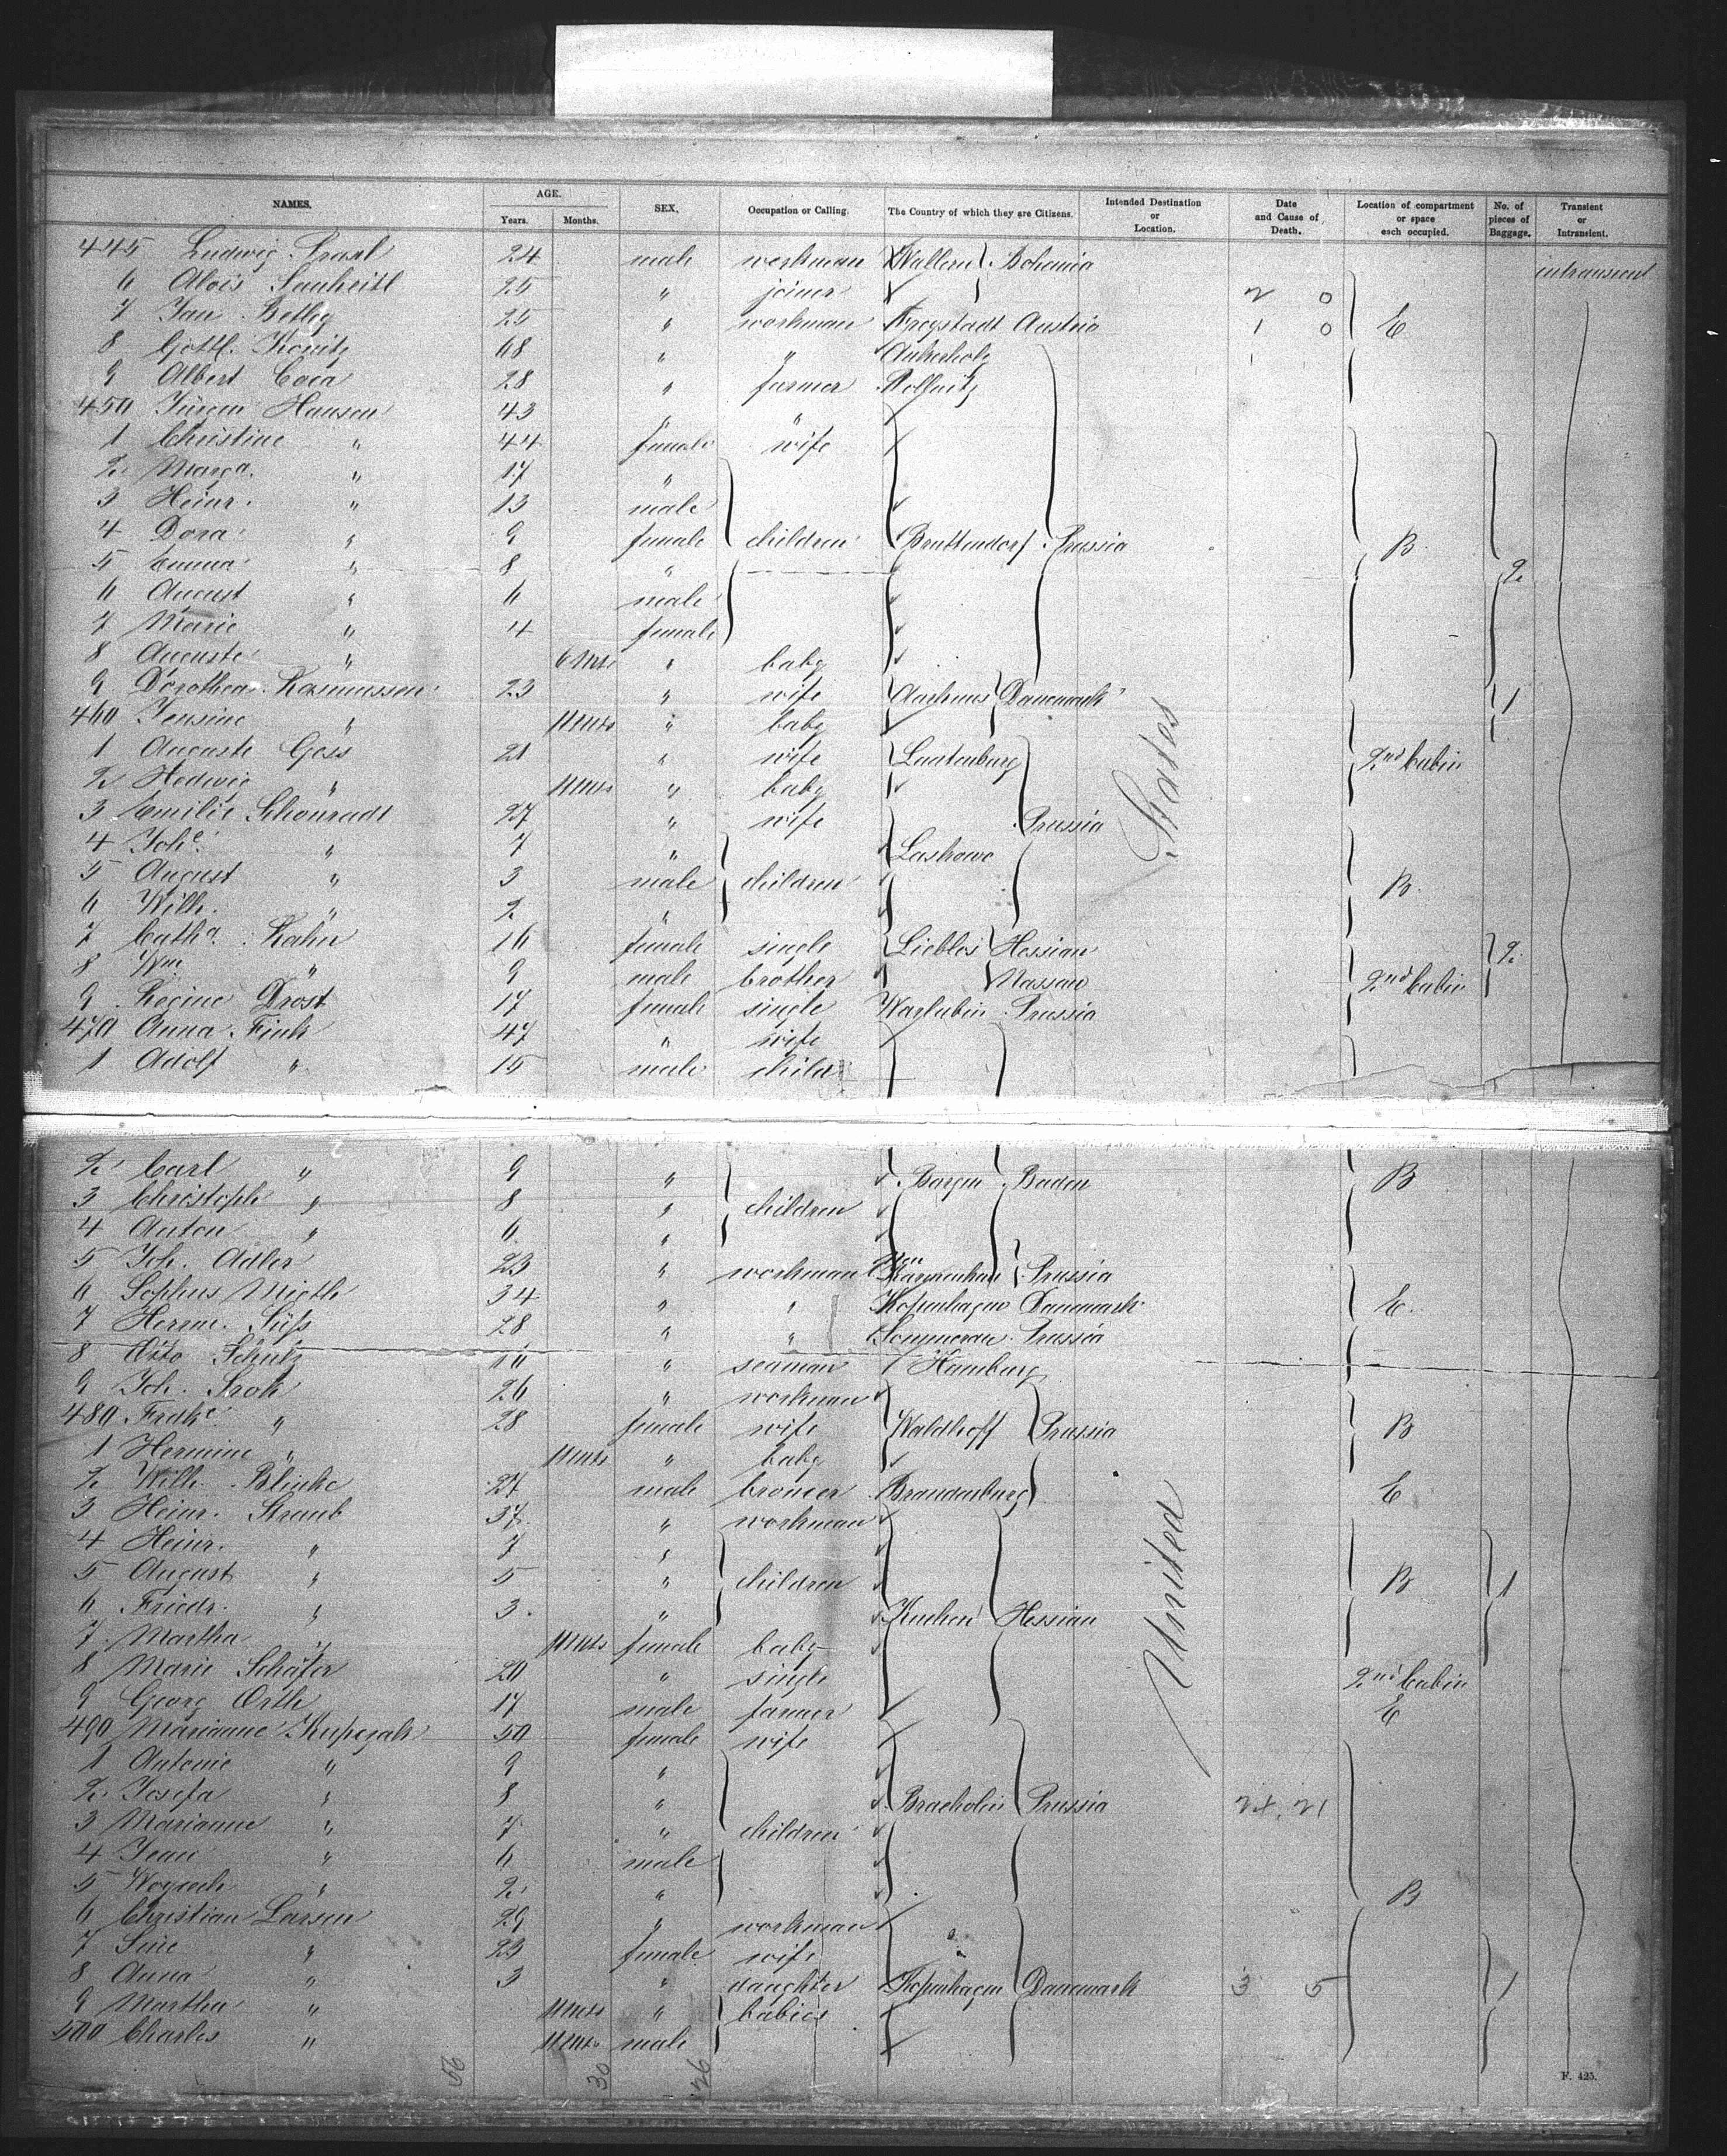 NAMES. AGE. Years. Months. SEX. Occupation or Calling. The Country of which they are Citizens. Intended Destination or Location. Date and Cause of Death. Location of compartment or space each occupied. No. of pieces of Baggage. Transient or Intransient.
445 Ludwig 24 male workman Wallern Bohemia intransient
6 Alois 25 " joiner 2 0
7 Jan 25 " workman Freystadt Austria 1 0 E
8 Gottl. 68 " "
9 Albert 28 " farmer
450 Jürgen Hansen 43 " "
1 Christine " 44 female wife
2 Marga. " 17 "
3 Heinr. " 13 male
4 Dora " 9 female children Prussia B
5 Emma " 8 " 2
6 August " 6 male
7 Marie " 4 female
8 Auguste " 6 Mts " baby
9 Dorothea Rasmussen 23 " wife Aarhuus Danemark 1
460 Jensine " 11 mts " baby
1 Auguste Goss 21 " wife Lautenburg 2nd Cabin
2 Hedwig " 11 mts " baby
3 Emilie Schonradt 27 " wife Prussia
4 Johe. " 7 "
5 August " 3 male children B
6 Wilh. " 2 "
7 Catha. Kahn 16 female single Lieblos Hessian 2
8 Wm " 9 male brother Nassau 2nd Cabin
9 Regine Drost 17 female single Warlubin Prussia
470 Anna Fink 47 " wife
1 Adolf " 15 male child
2 Carl " 9 " Bargen Baden B
3 Christoph " 8 " children
4 Anton " 6 "
5 Joh. Adler 23 " workman Prussia
6 Sophus 34 " " Kopenhagen Danemark E.
7 Herm. Süss 28 " " Sommerau Prussia
8 Otto Schulz " seaman Hamburg
9 Joh. 26 " workman
480 " 28 female wife Waldhoff Prussia B
1 Hermine " 11 mts " baby
2 Wilh. 27 male Brandenburg E
3 Heinr. Straub 37 " workman
4 Heinr. " 7 "
5 August " 5 " children B 1
6 Friedr. " 3. " Hessian
7 Martha " 11 mts female baby
8 Marie Schäfer 20 " single 2nd Cabin
9 Georg Orth 17 male farmer E
490 Marianne Kupczak 50 female wife
1 Antonie " 9 "
2 Josefa " 8 " Prussia 24, 21
3 Marianne " 7 " children
4 Jean " 6 male
5 " 2 " B
6 Christian Larsen 29 " workman
7 Sine " 23 female wife
8 Anna " 3 " daughter Kopenhagen Danemark 3 5 1
9 Martha " 11 mts " babies
500 Charles " 11 mts male
United States
56 30 26
F. 425.